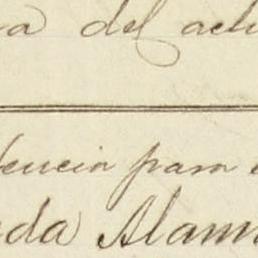 a del actu
dencia para
da Alam